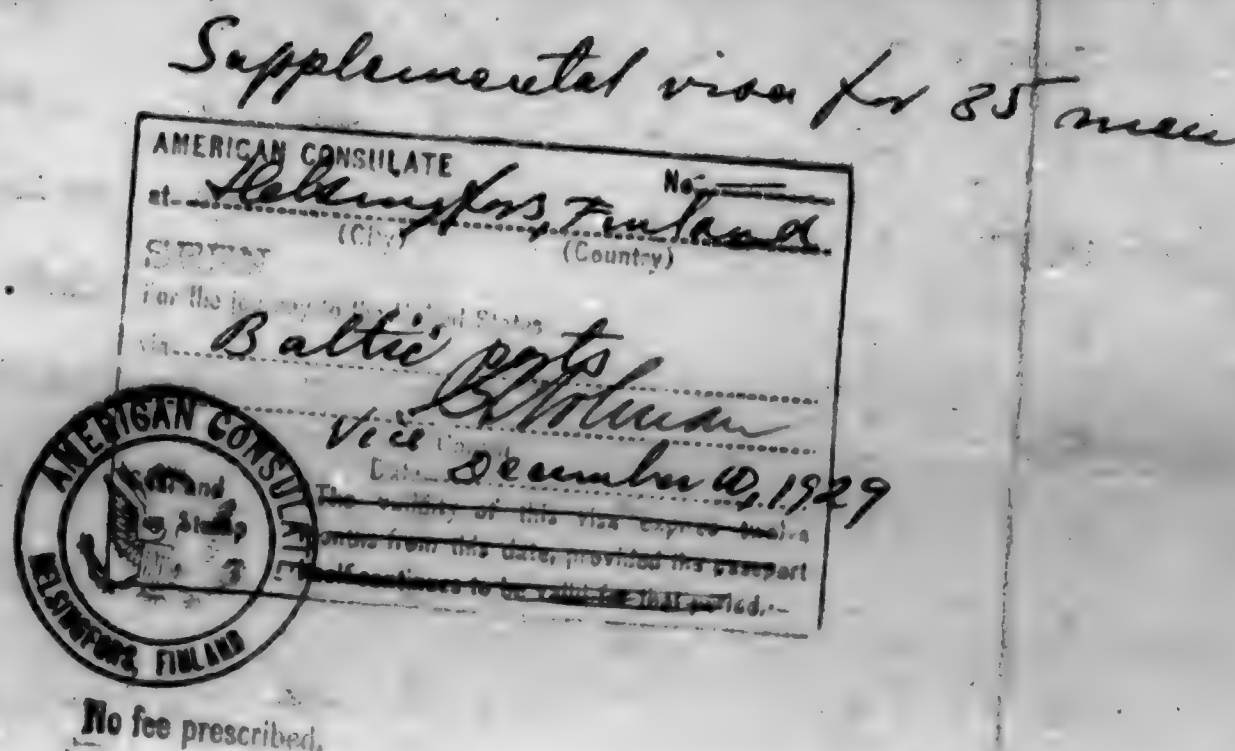 Supplemental visa for 35 men
AMERICAN CONSULATE No.
at Helsingfors, Finland
(City) (Country)
For the journey to the United States
via Baltic ports
Vice Consul
Date December 10, 1929
The validity of this visa expires twelve
months from this date, provided the passport
itself continues to be valid for that period.
AMERICAN CONSULATE.
Seal and
Stamp
HELSINGFORS, FINLAND
No fee prescribed.